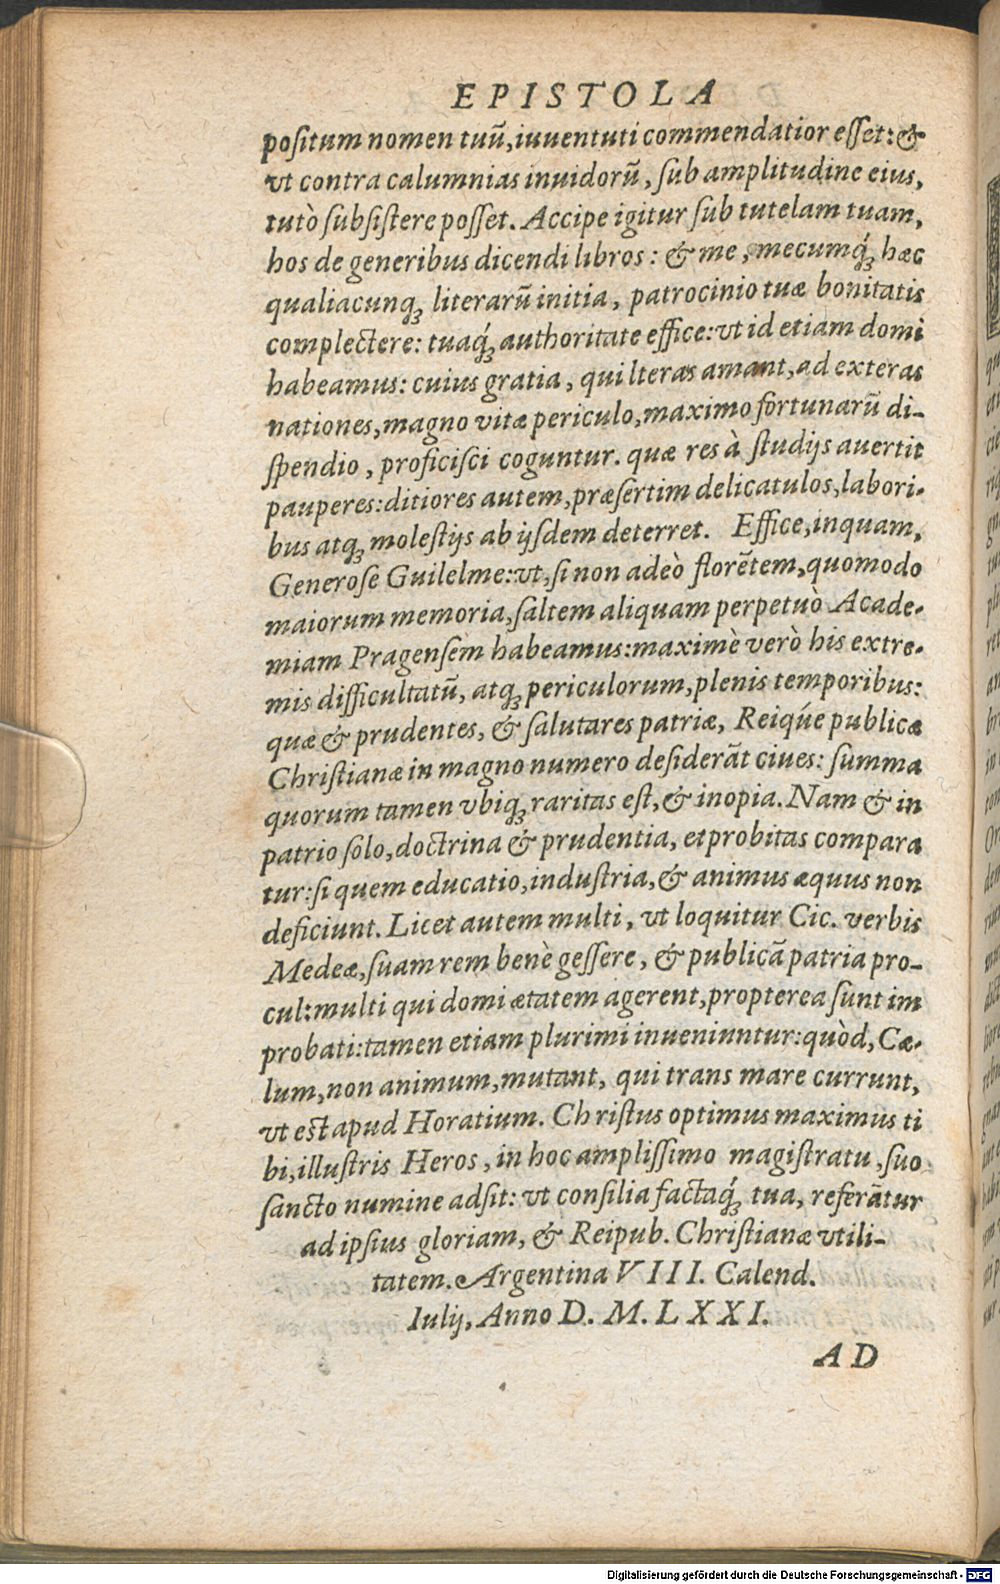 EPISTOLA
positum nomen tuū, iuuentuti commendatior esset: &
vt contra calumnias inuidorū, sub amplitudine eius,
tutò subsistere posset. Accipe igitur sub tutelam tuam,
hos de generibus dicendi libros: & me, mecumq́ꝫ hæc
qualiacunqꝫ literarū initia, patrocinio tuæ bonitatis
complectere: tuaq́ꝫ authoritate effice: vt id etiam domi
habeamus: cuius gratia, qui lteras amant, ad exteras
nationes, magno vitæ periculo, maximo fortunarū di-
spendio, proficisci coguntur. quæ res à studijs auertit
pauperes: ditiores autem, præsertim delicatulos, labori-
bus atqꝫ molestijs ab ijsdem deterret. Effice, inquam,
Generose Guilelme: vt, si non adeò florētem, quomodo
maiorum memoria, saltem aliquam perpetuò Acade-
miam Pragensem habeamus: maximè verò his extre-
mis difficultatū, atqꝫ periculorum, plenis temporibus:
quæ & prudentes, & salutares patriæ, Reiq́ue publicæ
Christianæ in magno numero desiderāt ciues: summa
quorum tamen vbiqꝫ raritas est, & inopia. Nam & in
patrio solo, doctrina & prudentia, et probitas compara
tur: si quem educatio, industria, & animus æquus non
deficiunt. Licet autem multi, vt loquitur Cic. verbis
Medeæ, suam rem benè gessere, & publicā patria pro-
cul: multi qui domi ætatem agerent, propterea sunt im
probati: tamen etiam plurimi inueniuntur: quòd, Cæ-
lum, non animum, mutant, qui trans mare currunt,
vt est apud Horatium. Christus optimus maximus ti
bi, illustris Heros, in hoc amplissimo magistratu, suo
sancto numine adsit: vt consilia factaq́ꝫ tua, referātur
ad ipsius gloriam, & Reipub. Christianæ vtili-
tatem. Argentina VIII. Calend.
Iulij, Anno D. M. LXXI.
AD
Digitalisierung gefördert durch die Deutsche Forschungsgemeinschaft - DFG